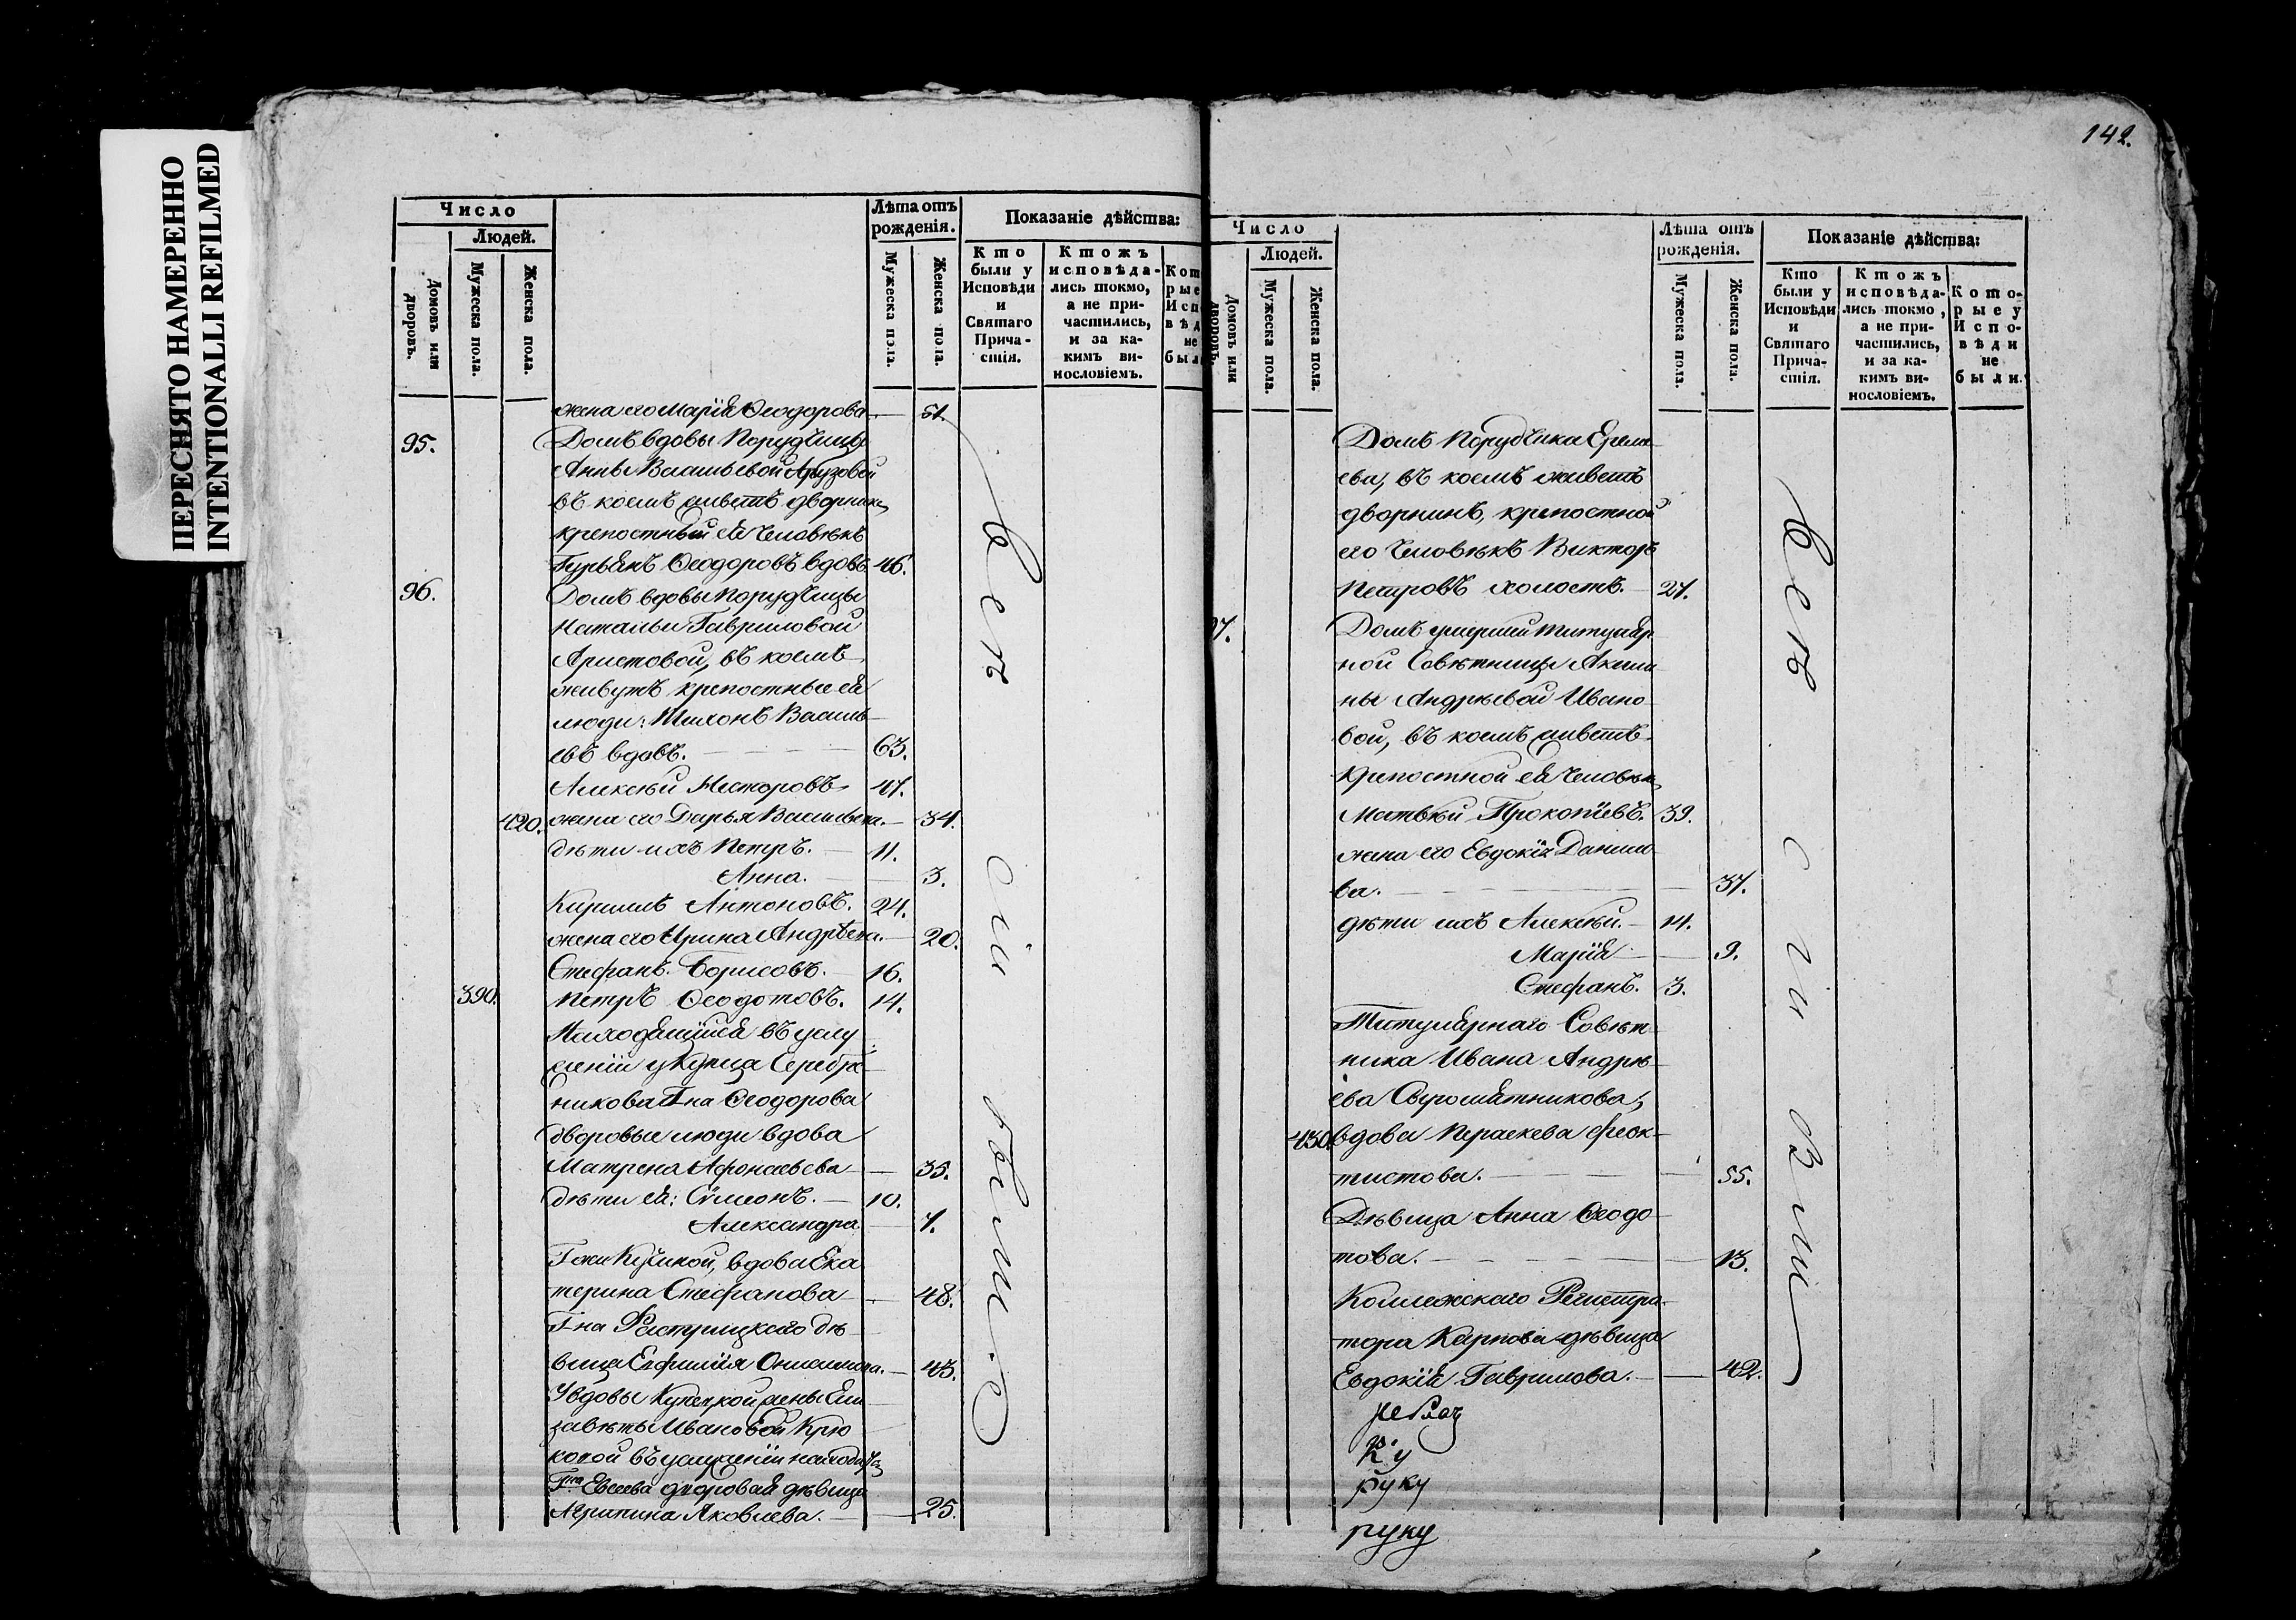 ПЕРЕСНЯТО НАМЕРЕННО
INTENTIONALLI REFILMED
Число
Людей.
Домовъ или дворовъ.
Мужеска пола.
Женска пола.
Лѣта отъ рожденія.
Мужеска пола.
Женска пола.
Показаніе дѣйства:
Кто были у Исповѣди и Святаго Прича-стія.
Ктожъ исповѣда-лись токмо, а не при-частились, и за ка-кимъ ви-нословіемъ.
жена его Марія Ѳеодорова — 51.
95. Домъ вдовы Порутчицы
Анны Васильевой
въ коемъ живетъ дворникъ
крепостный ея человѣкъ
Гурьянъ Ѳеодоровъ вдовъ 46.
96. Домъ вдовы Порутчицы
Натальи Гавриловой
Аристовой, въ коемъ
живутъ крепостные ея
люди: Тихонъ Василь-
евъ вдовъ. — 63.
Алексѣй Несторовъ 47.
420. жена его Дарья Васильева. — 34.
дѣти ихъ Петръ. — 11.
Анна. — 3.
Кириллъ Антоновъ. 24.
жена его Ирина Андрѣева. — 20.
Стефанъ Борисовъ. 16.
390. Петръ Ѳеодотовъ. 14.
Находящійся въ услу
женіи у Купца Серебря-
никова Гна Ѳеодорова
дворовые люди вдова
Матрена Афонасьева — 35.
дѣти ея: Сѵмеонъ. — 10.
Александра — 7.
Гжи вдова Ека
терина Стефанова — 48.
Гна Растрицкаго дѣ-
вица Евфимія Онисимова. — 43.
У вдовы Купецкой жены Ели
заветы Ивановой Крю
ковой въ услуженіи находится
Гна Евсеева дворовая дѣвица
Агрипина Яковлева. — 25.
Всѣ сіи были.
142.
Число
Людей.
Домовъ или дворовъ.
Мужеска пола.
Женска пола.
Лѣта отъ рожденія.
Мужеска пола.
Женска пола.
Показаніе дѣйства:
Кто были у Исповѣди и Святаго Прича-стія.
Ктожъ исповѣда-лись токмо, а не при-частились, и за ка-кимъ ви-нословіемъ.
Кото-рые у Испо-вѣди не были.
Домъ Порутчика Ереме-
ева, въ коемъ живетъ
дворникъ, крепостной
его человѣкъ Викторъ
Петровъ холостъ. — 27.
97. Домъ умершей титуляр
ной Совѣтницы Акили
ны Андрѣевой Ивано
вой, въ коемъ живетъ
крепостной ея человѣкъ
Матвѣй Прокопіевъ. 39.
жена его Евдокія Данило
ва. — 37.
дѣти ихъ Алексѣй. — 14.
Марія — 9.
Стефанъ. 3.
Титулярнаго Совѣт
ника Ивана Андрѣ-
ева Сыромятникова,
430. вдова Параскева Феок-
тистова. — 55.
Дѣвица Анна Ѳеодо-
това. — 13.
Коллежскаго Регистра-
тора Карпова дѣвица
Евдокія Гаврилова. — 42.
Всѣ сіи были
руку
руку